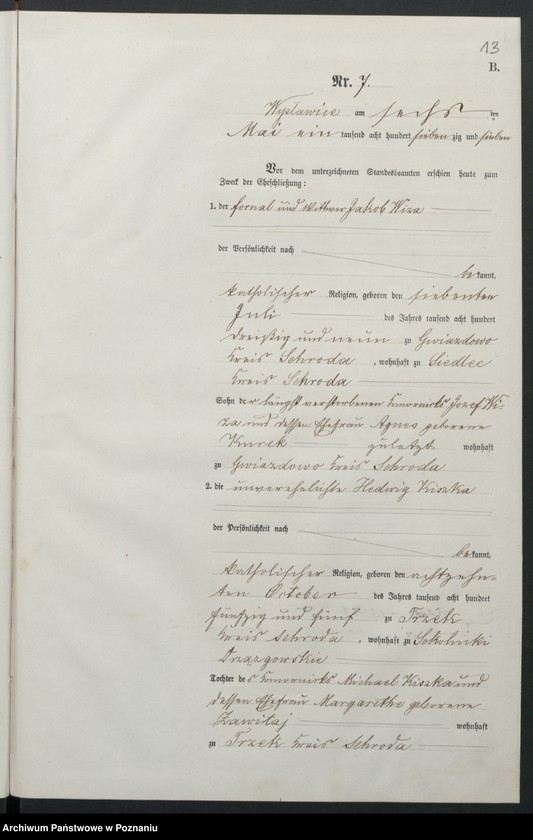 13
B.
Nr. 7.
Wyslawice am sechs ten
Mai ein tausend acht hundert sieben zig und sieben
Vor dem unterzeichneten Standesbeamten erschien heute zum
Zweck der Eheschließung:
1. der fornal und Wittwer Jakob Wiza
der Persönlichkeit nach
be kannt,
katholischer Religion, geboren den siebenten
Juli des Jahres tausend acht hundert
dreißig und neun zu Gwiazdowo
Kreis Schroda, wohnhaft zu Siedlec
Kreis Schroda
Sohn der längst verstorbenen Komorniks Jozef Wi-
za und dessen Ehefrau Agnes geborene
Kurek zuletzt wohnhaft
zu Gwiazdowo Kreis Schroda
2. die unverehelichte Hedwig Kiszka
der Persönlichkeit nach
be kannt,
katholischer Religion, geboren den achtzehn-
ten October des Jahres tausend acht hundert
fünfzig und fünf zu Trzek
Kreis Schroda, wohnhaft zu Sokolniki
Drzązgowskie
Tochter des Komorniks Michael Kiszka und
dessen Ehefrau Margarethe geborene
Zawitaj wohnhaft
zu Trzek Kreis Schroda
Archiwum Państwowe w Poznaniu